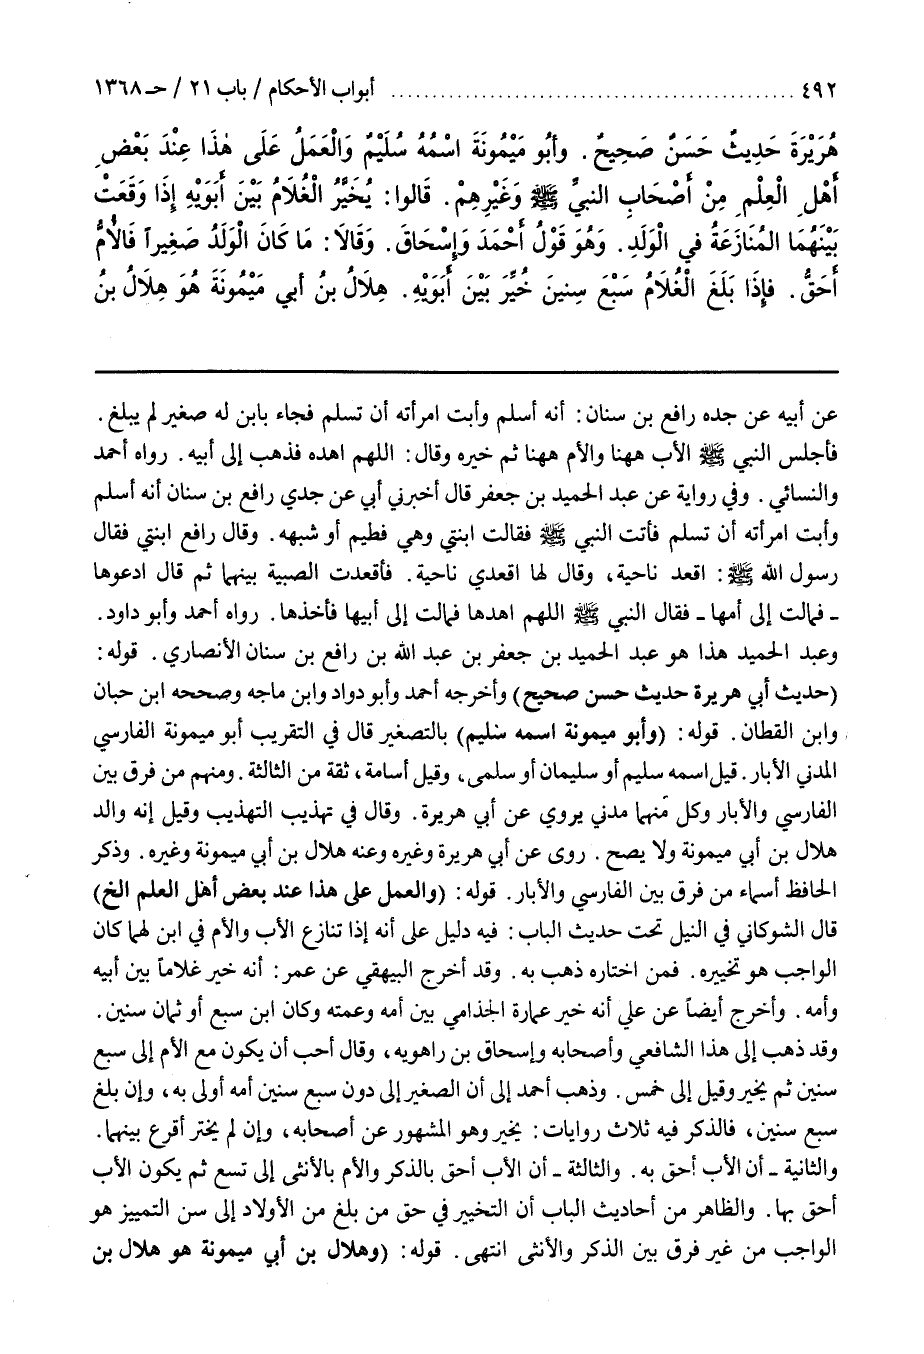 ٤٩٢ ............................................ أبواب الأحكام / باب ٢١ / حـ ١٣٦٨
هُرَيْرَةَ حَدِيثٌ حَسَنٌ صَحِيحٌ. وأَبُو مَيْمُونَةَ اسْمُهُ سُلَيْمٌ وَالْعَمَلُ عَلَى هٰذَا عِنْدَ بَعْضِ
أَهْلِ الْعِلْمِ مِنْ أَصْحَابِ النبيِّ ﷺ وَغَيْرِهِمْ. قَالوا: يُخَيَّرُ الْغُلاَمُ بَيْنَ أَبَوَيْهِ إِذَا وَقَعَتْ
بَيْنَهُمَا المُنَازَعَةُ في الْوَلَدِ. وَهُوَ قَوْلُ أَحْمَدَ وَإِسْحَاقَ. وَقَالاَ: مَا كَانَ الْوَلَدُ صَغِيراً فَالأُمُّ
أَحَقُّ. فإِذَا بَلَغَ الْغُلاَمُ سَبْعَ سِنينَ خُيِّرَ بَيْنَ أَبَوَيْهِ. هِلاَلُ بنُ أبي مَيْمُونَةَ هُوَ هِلاَلُ بنُ
عن أبيه عن جده رافع بن سنان: أنه أسلم وأبت امرأته أن تسلم فجاء بابن له صغير لم يبلغ.
فأجلس النبي ﷺ الأب ههنا والأم ههنا ثم خيره وقال: اللهم اهده فذهب إلى أبيه. رواه أحمد
والنسائي. وفي رواية عن عبد الحميد بن جعفر قال أخبرني أبي عن جدي رافع بن سنان أنه أسلم
وأبت امرأته أن تسلم فأتت النبي ﷺ فقالت ابنتي وهي فطيم أو شبهه. وقال رافع ابنتي فقال
رسول الله ﷺ: اقعد ناحية، وقال لها اقعدي ناحية. فأقعدت الصبية بينهما ثم قال ادعوها
ـ فمالت إلى أمها ـ فقال النبي ﷺ اللهم اهدها فمالت إلى أبيها فأخذها. رواه أحمد وأبو داود.
وعبد الحميد هذا هو عبد الحميد بن جعفر بن عبد الله بن رافع بن سنان الأنصاري. قوله:
(حديث أبي هريرة حديث حسن صحيح) وأخرجه أحمد وأبو دواد وابن ماجه وصححه ابن حبان
وابن القطان. قوله: (وأبو ميمونة اسمه سليم) بالتصغير قال في التقريب أبو ميمونة الفارسي
المدني الأبار. قيل اسمه سليم أو سليمان أو سلمى، وقيل أسامة، ثقة من الثالثة. ومنهم من فرق بين
الفارسي والأبار وكل منهما مدني يروي عن أبي هريرة. وقال في تهذيب التهذيب وقيل إنه والد
هلال بن أبي ميمونة ولا يصح. روى عن أبي هريرة وغيره وعنه هلال بن أبي ميمونة وغيره. وذكر
الحافظ أسماء من فرق بين الفارسي والأبار. قوله: (والعمل على هذا عند بعض أهل العلم الخ)
قال الشوكاني في النيل تحت حديث الباب: فيه دليل على أنه إذا تنازع الأب والأم في ابن لهما كان
الواجب هو تخييره. فمن اختاره ذهب به. وقد أخرج البيهقي عن عمر: أنه خير غلاماً بين أبيه
وأمه. وأخرج أيضاً عن علي أنه خير عمارة الجذامي بين أمه وعمته وكان ابن سبع أو ثمان سنين.
وقد ذهب إلى هذا الشافعي وأصحابه وإسحاق بن راهويه، وقال أحب أن يكون مع الأم إلى سبع
سنين ثم يخير وقيل إلى خمس. وذهب أحمد إلى أن الصغير إلى دون سبع سنين أمه أولى به، وإن بلغ
سبع سنين، فالذكر فيه ثلاث روايات: يخير وهو المشهور عن أصحابه، وإن لم يختر أقرع بينهما.
والثانية ـ أن الأب أحق به. والثالثة ـ أن الأب أحق بالذكر والأم بالأنثى إلى تسع ثم يكون الأب
أحق بها. والظاهر من أحاديث الباب أن التخيير في حق من بلغ من الأولاد إلى سن التمييز هو
الواجب من غير فرق بين الذكر والأنثى انتهى. قوله: (وهلال بن أبي ميمونة هو هلال بن